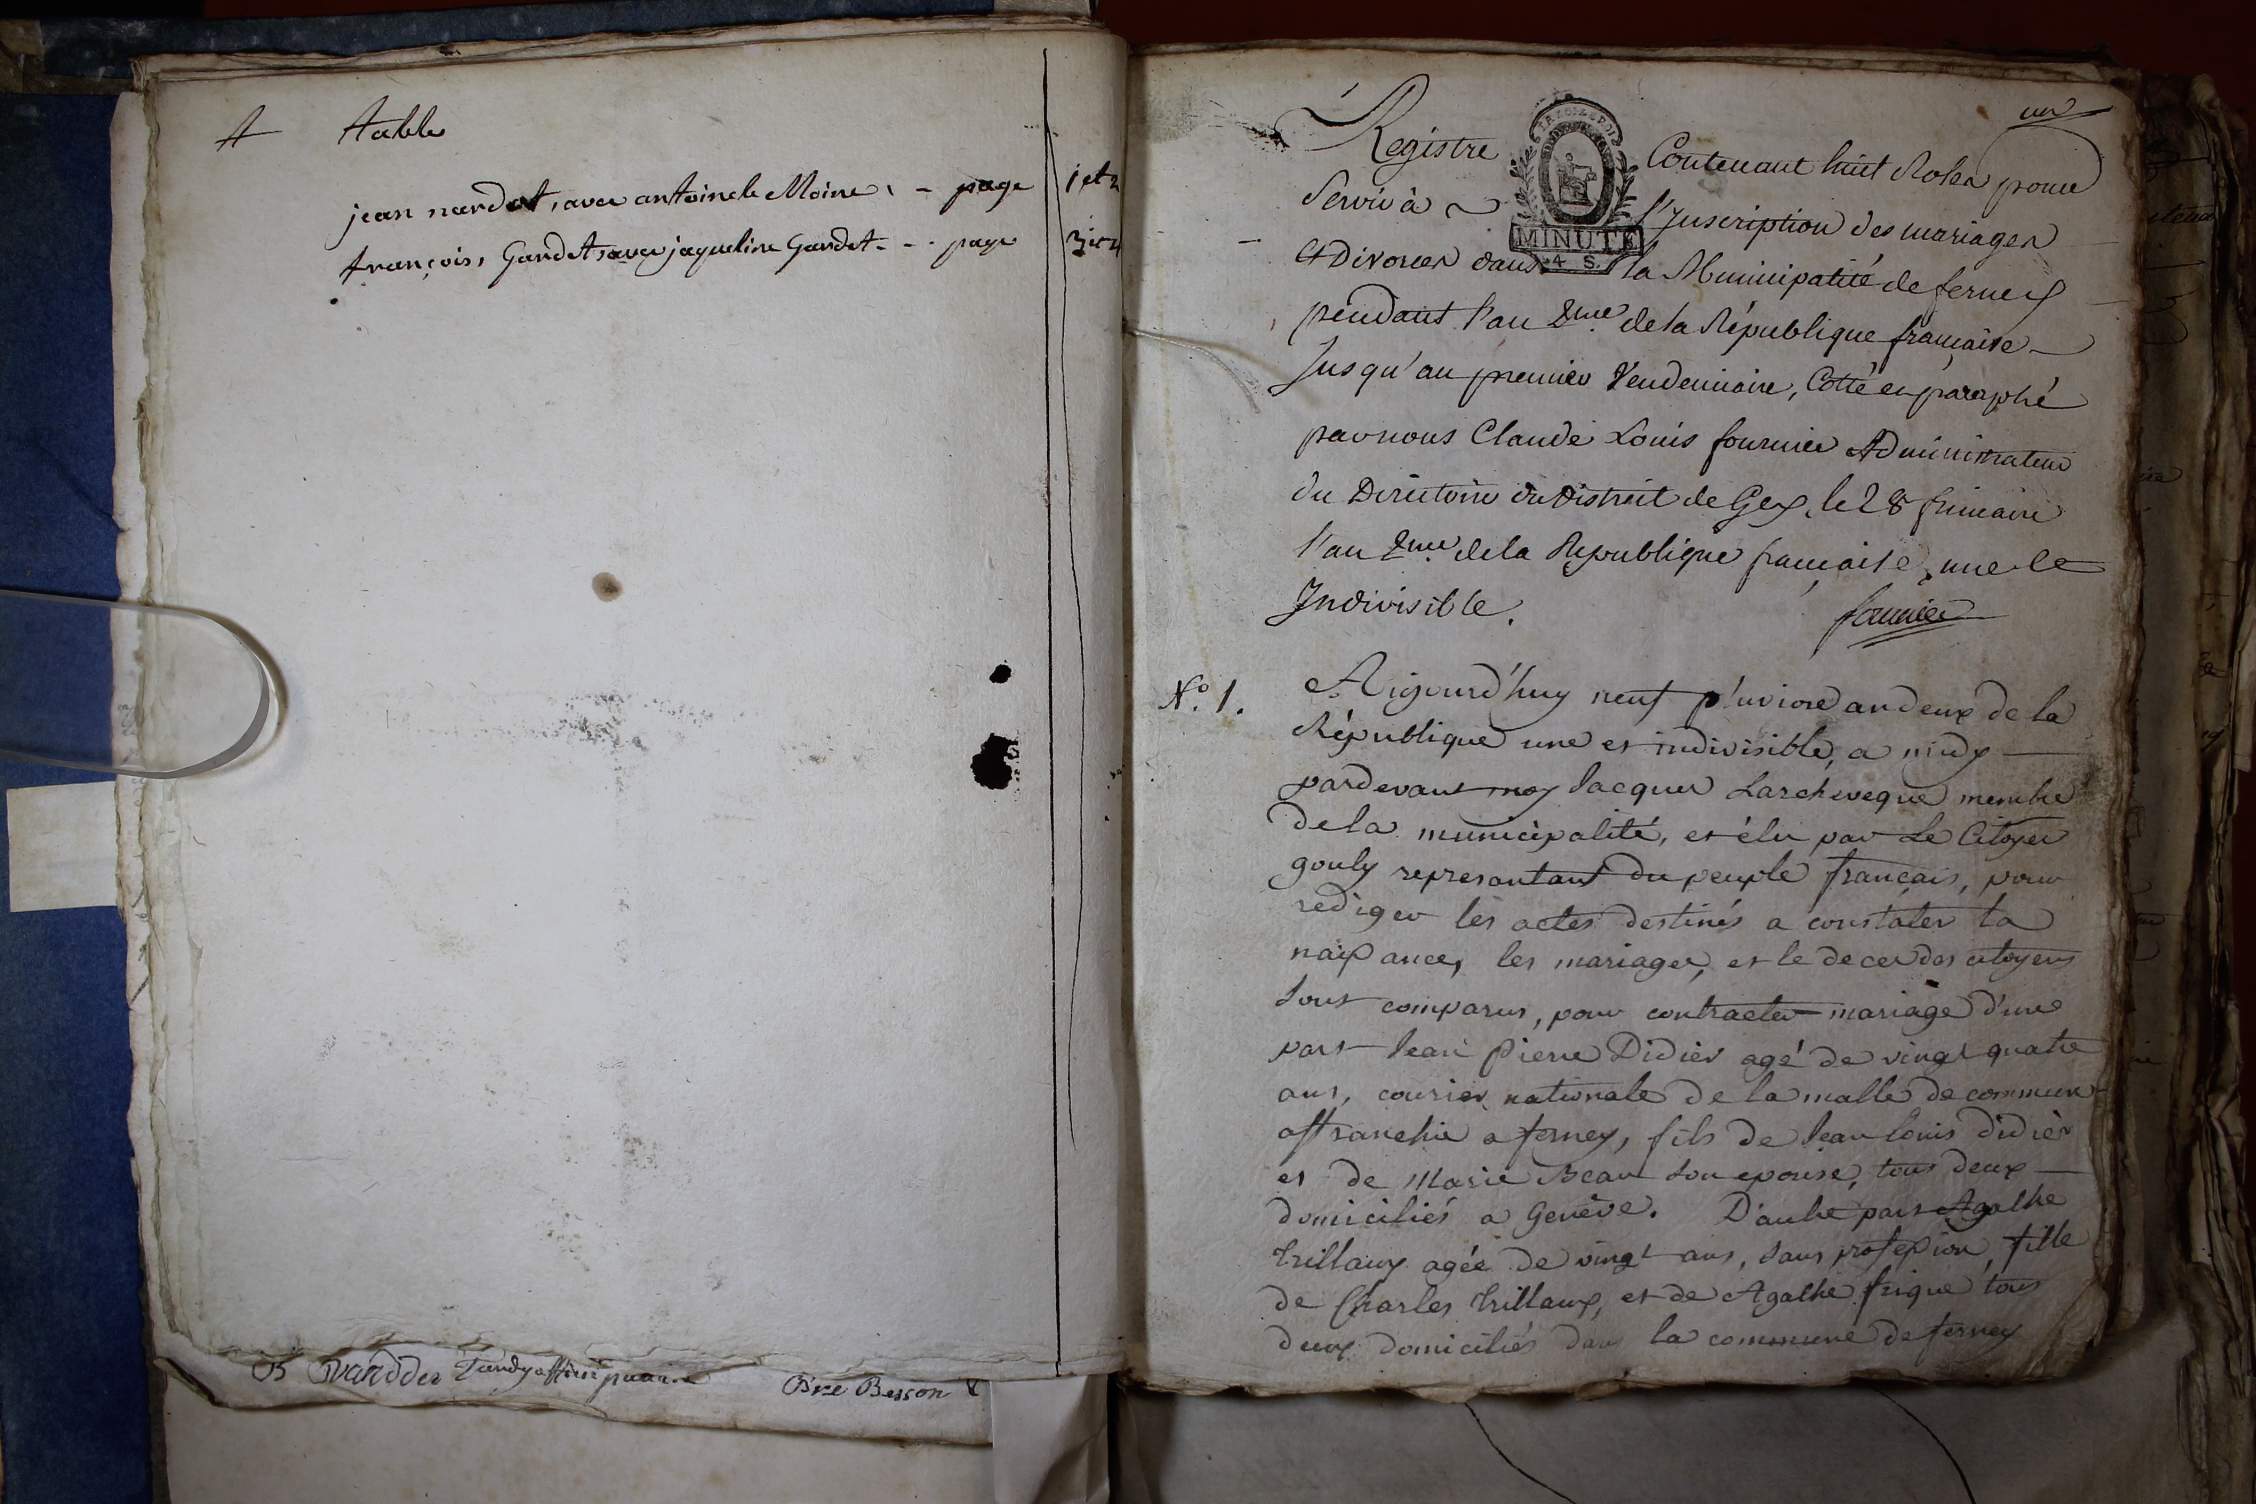 A Table
jean nardot, avec antoinele Moine, - page 1 et 2
françois, Gardet, avec jaqueline Gardet - - page 3 et 4
Brre Besson
un
Registre Contenant huit Roles pour
Servir à l'Inscription des mariages
MINUTE
4 S.
& Divorces dans la Municipalité de ferney
pendant l'an 2me de la République française
Jusqu'au premier Vendemiaire, Cotté en paraphé
par nous Claude Louis fournier Administrateur
du Directoire du District de Gex, le 28 frimaire
l'an 2me de la Republique française, une le
Indivisible.
fournier
No. 1. Aujourd'huy neuf pluviose an deux de la
République une et indivisible, a midy
pardevant moy Jacques Larcheveque membre
de la municipalité, et élu par Le Citoyen
gouly represantant du peuple français, pour
rediger les actes destinés a constater la
naissance, les mariages, et le deces des citoyens
sont comparus, pour contracter mariage d'une
part Jean Pierre Didier agé de vingt quatre
ans, courier nationale de la malle de commune
affranchie a ferney, fils de Jean louis didier
et de Marie Beau son epouse, tous deux
domiciliés a Genève. D'autre part Agathe
trillaux agée de vingt ans, sans profession, fille
de Charles trillaux, et de Agathe frique tous
deux domiciliés dans la commune de ferney